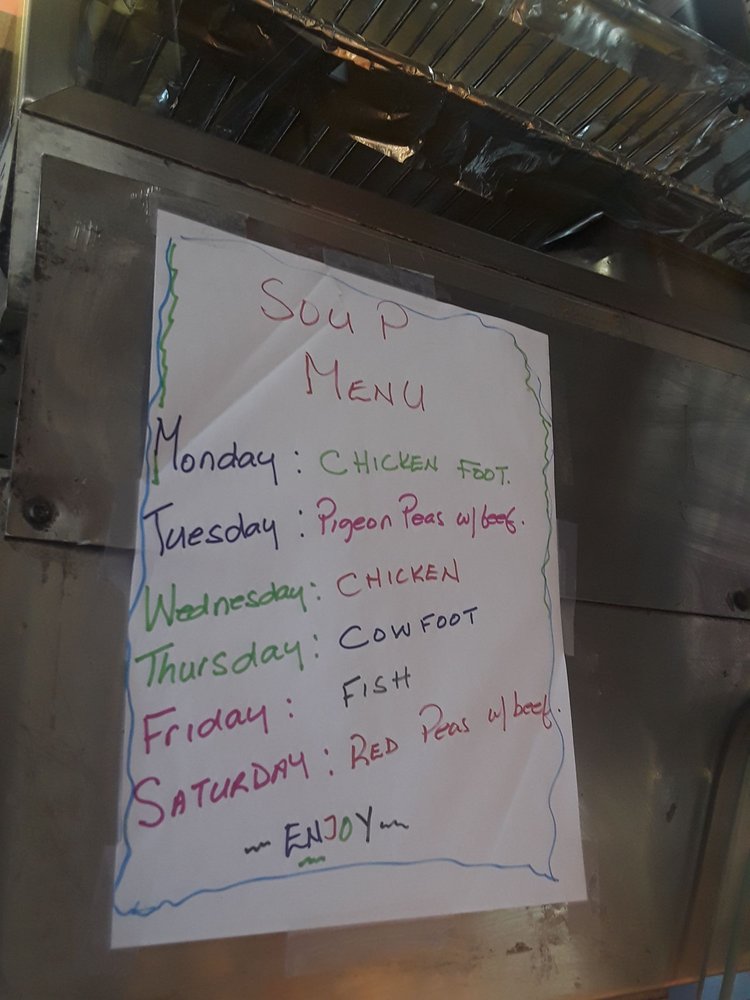 SOUP
MENU
Monday : CHICKEN FOOT.
Tuesday : Pigeon Peas w/ beef.
Wednesday : CHICKEN
Thursday : COWFOOT
Friday : FISH
SATURDAY : RED Peas w/ beef.
~ ENJOY ~